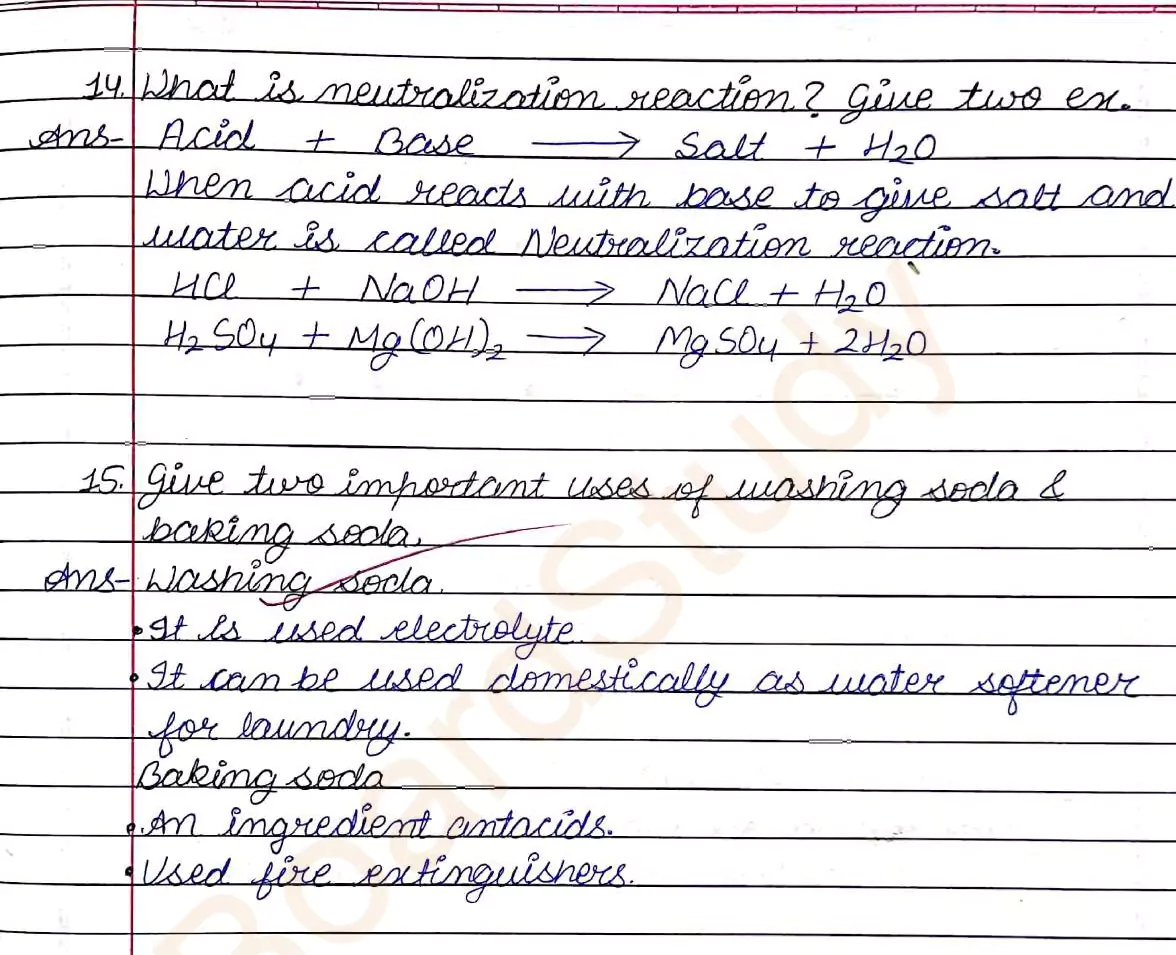 14. What is neutralization reaction? Give two ex.
Ans- Acid + Base ⟶ Salt + H₂O
When acid reacts with base to give salt and
water is called Neutralization reaction.
HCl + NaOH ⟶ NaCl + H₂O
H₂SO₄ + Mg(OH)₂ ⟶ MgSO₄ + 2H₂O
15. Give two important uses of washing soda &
baking soda.
Ans- Washing soda.
• It is used electrolyte.
• It can be used domestically as water softener
for laundry.
Baking soda
• An ingredient antacids.
• Used fire extinguishers.
BoardStudy